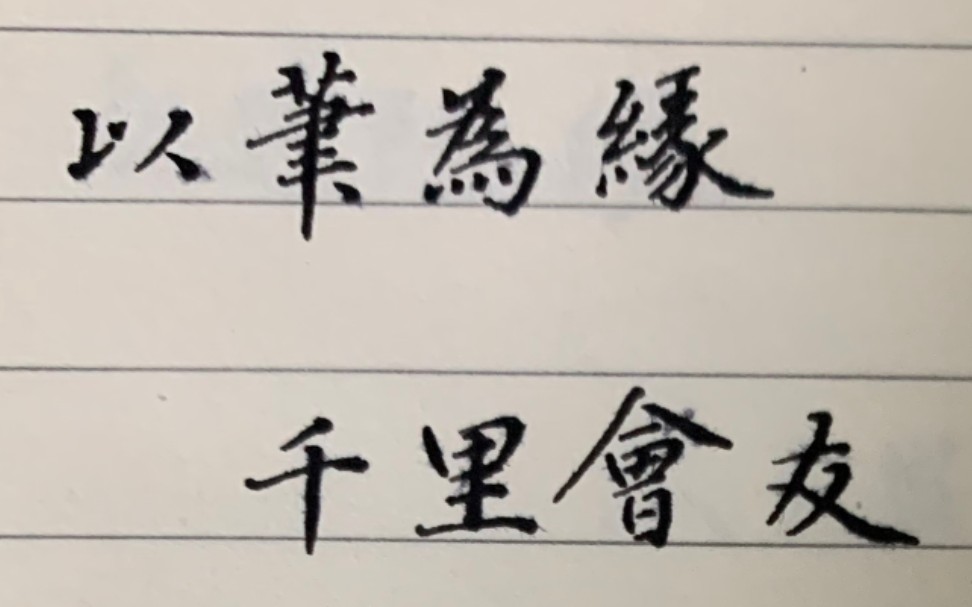 以筆為緣
千里會友